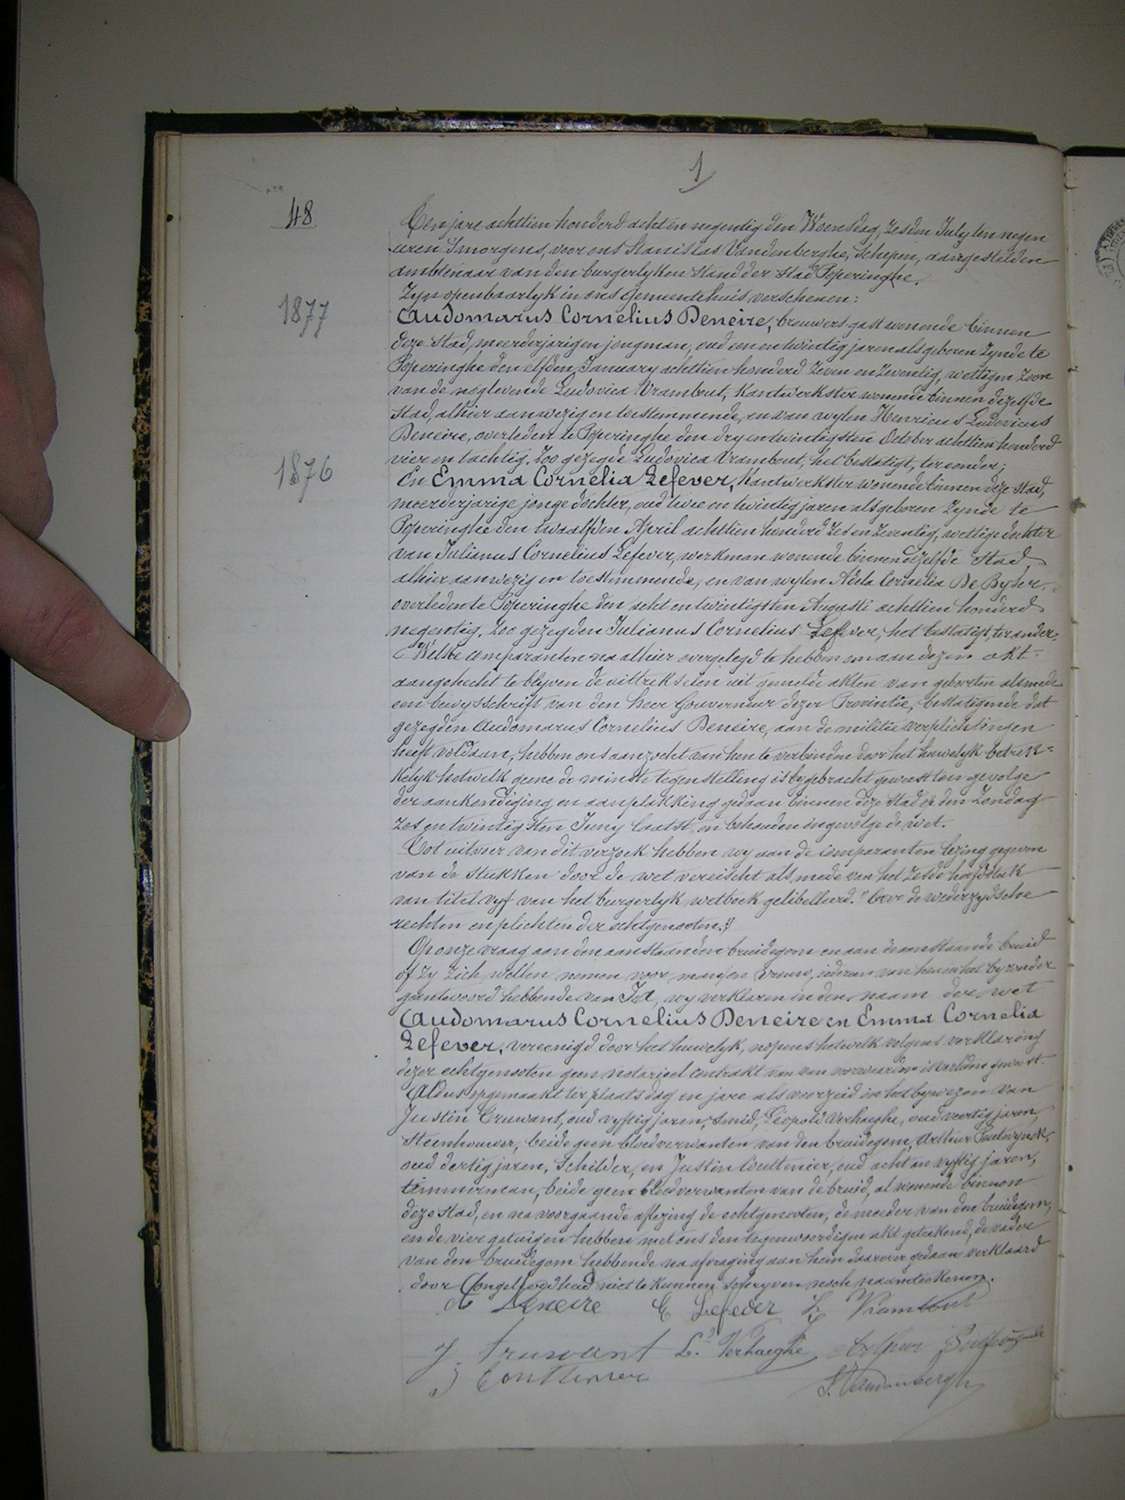 1
48
Ten jare achttien honderd acht en negentig den Woensdag, zesden July ten negen
uren smorgens, voor ons Stanislas Vandenberghe, Schepen, aangestelden
ambtenaar van den burgerlyken stand der stad Poperinghe.
Zyn openbaarlyk in ons gemeentehuis verschenen:
1877
Audomarus Cornelius Deneire, brouwers gast wonende binnen
deze stad, meerderjarigen jongman, oud een en twintig jaren als geboren zynde te
Poperinghe den elfden January achttien honderd zeven en zeventig, wettigen zoon
van de nog levende Ludovica Vrambout, kantwerkster wonende binnen dezelfde
stad, alhier aanwezig en toestemmende, en van wylen Henricus Ludovicus
Deneire, overleden te Poperinghe den dry en twintigsten October achttien honderd
vier en tachtig. Zoo gezegde Ludovica Vrambout, het bestatigt, ter eender;
1876
En Emma Cornelia Lefever, kantwerkster wonende binnen deze stad,
meerderjarige jonge dochter, oud twee en twintig jaren als geboren zynde te
Poperinghe den twaalfden April achttien honderd zes en zeventig, wettige dochter
van Julianus Cornelius Lefever, werkman wonende binnen dezelfde stad
alhier aanwezig en toestemmende, en van wylen Cornelia De Byser
overleden te Poperinghe den acht en twintigsten Augusti achttien honderd
negentig. Zoo gezegden Julianus Cornelius Lefever, het bestatigt, ter ander.
Welke comparanten na alhier overgelegd te hebben om aan dezen akt
aangehecht te blyven de uittrekselen uit gemelde akten van geboorten alsmede
een bewysschrift van den heer Gouverneur dezer Provintie, bestatigende dat
gezegden Audomarus Cornelius Deneire, aan de militie verplichtingen
heeft voldaan, hebben ons aanzocht van hen te verbinden door het huwelyk betrek=
kelyk hetwelk geene de minste tegenstelling is bygebracht geweest ten gevolge
der aankondiging en aanplakking gedaan binnen deze stad op den Zondag
zes en twintigsten Juny laatst, en behouden ingevolge de wet.
Tot uitvoer van dit verzoek hebben wy aan de comparanten lezing gegeven
van de stukken door de wet vereischt als mede van het zesde hoofdstuk
van titel vyf van het burgerlyk wetboek gelibelleerd: "Over de wederzydsche
rechten en plichten der echtgenooten."
Op onze vraag aan den aanstaanden bruidegom en aan de aanstaande bruid
of zy zich willen nemen voor man en vrouw, iedereen van hen in het byzonder
geantwoord hebbende van Ja, wy verklaren in den naam der wet
Audomarus Cornelius Deneire en Emma Cornelia
Lefever, vereenigd door het huwelyk, nopens hetwelk volgens verklaring
dezer echtgenooten geen notarieel contrakt van voorwaarden is verleden geweest.
Aldus opgemaakt ter plaats dag en jare als voorzeid in het bywezen van
Justin Cruwant, oud vyftig jaren, smid, Léopold Verhaeghe, oud veertig jaren,
Steenhouwer, beide geen bloedverwanten van den bruidegom, Arthur
oud dertig jaren, Schilder, en Justin oud acht en vyftig jaren,
timmerman, beide geen bloedverwanten van de bruid, al wonende binnen
deze stad, en na voorgaande aflezing de echtgenooten, de moeder van den bruidegom,
en de vier getuigen hebben met ons den tegenwoordigen akt geteekend, de vader
van den bruidegom hebbende na afvraging aan hem daarover gedaan verklaard
door Ongeleerdheid niet te kunnen schryven noch naamteekenen.
Deneire E Lefever L Vrambout
J Cruwant L. Verhaeghe Arthur
J
S. Vandenberghe